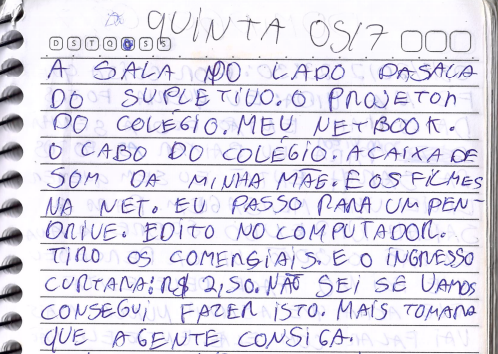 QUINTA 05/7
D S T Q Q S S
A SALA DO LADO DA SALA
DO SUPLETIVO. O PROJETOR
DO COLÉGIO. MEU NETBOOK.
O CABO DO COLÉGIO. A CAIXA DE
SOM DA MINHA MÃE. E OS FILMES
NA NET. EU PASSO PARA UM PEN-
DRIVE. EDITO NO COMPUTADOR.
TIRO OS COMERSIAIS. E O INGRESSO
CURTARA: R$ 2,50. NÃO SEI SE VAMOS
CONSEGUI FAZER ISTO. MAIS TOMARA
QUE A GENTE CONSIGA.